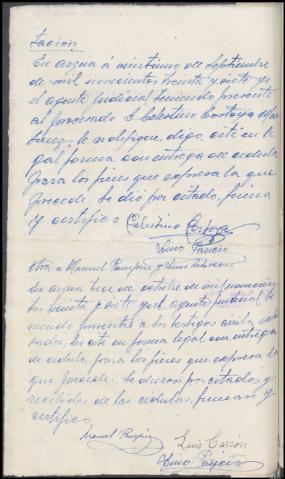 tación
En Arzúa a veintiuno de Septiembre
de mil novecientos treinta y siete yo
el agente judicial teniendo presente
al procesado D Celestino Costoya
le notifique, digo, cité en le
gal forma con entrega de cedula
para los fines que expresa la que
precede. Se dió por citado, firma
y certifico
Celestino Costoya
Otra a Manuel
En Arzua trece de octubre de mil novecien
tos treinta y siete yo el agente judicial te
niendo presentes a los testigos arriba expre
sados, les cité en forma legal con entrega
de cedula para los fines que expresa la
que precede. Se dieron por citados y
recibidos de las cedulas, firman y
certifico
Manuel
Luis